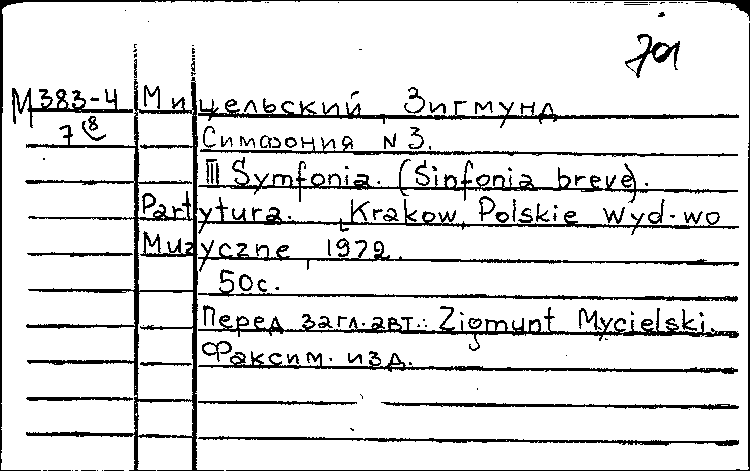 М 383-4 Мицельский, Зигмунд
7 8 Симфония N 3.
III Symfonia. (Sinfonia breve).
Partytura. Krakow, Polskie wyd-wo
Muzyczne, 1972.
50 с.
Перед загл. авт.: Zigmunt Mycielski.
Факсим. изд.